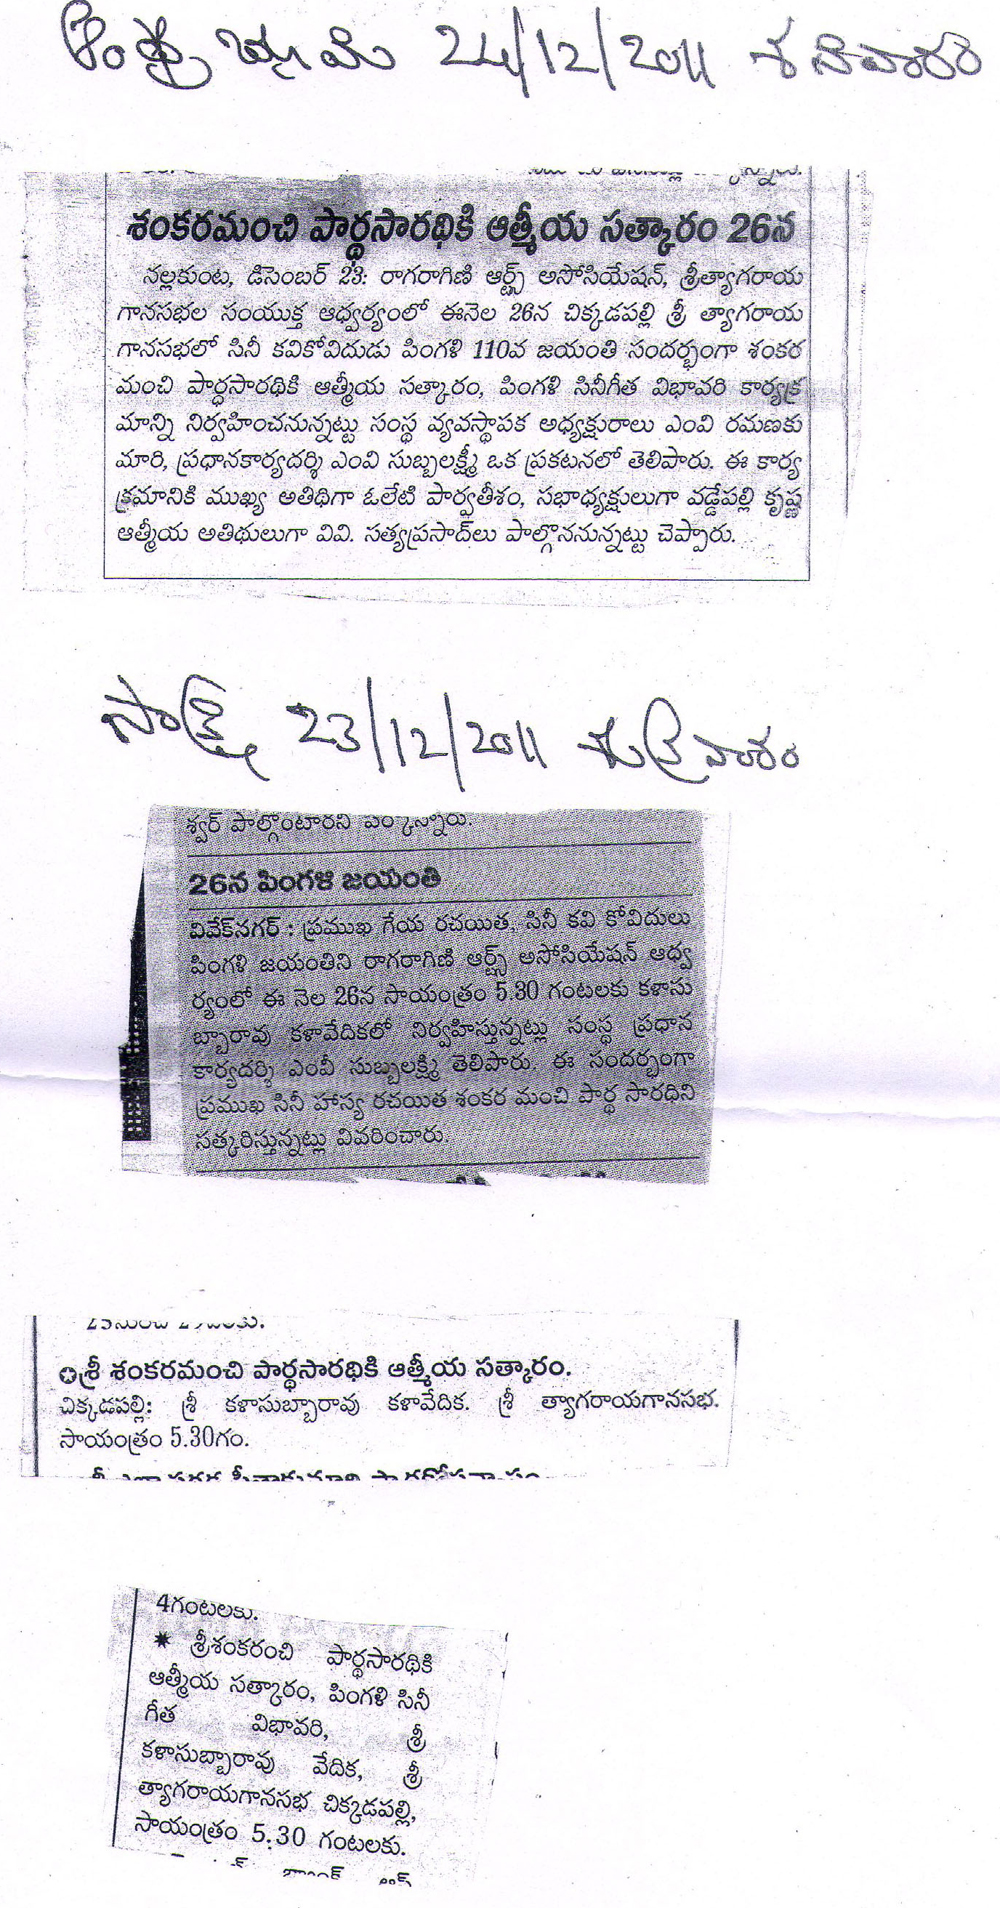 ఆంధ్ర భూమి 24/12/2011 శనివారం
శంకరమంచి పార్థసారథికి ఆత్మీయ సత్కారం 26న
నల్లకుంట, డిసెంబర్ 23: రాగరాగిణి ఆర్ట్స్ అసోసియేషన్, శ్రీత్యాగరాయ
గానసభల సంయుక్త ఆధ్వర్యంలో ఈనెల 26న చిక్కడపల్లి శ్రీ త్యాగరాయ
గానసభలో సినీ కవికోవిదుడు పింగళి 110వ జయంతి సందర్భంగా శంకర
మంచి పార్థసారథికి ఆత్మీయ సత్కారం, పింగళి సినీగీత విభావరి కార్యక్ర
మాన్ని నిర్వహించనున్నట్టు సంస్థ వ్యవస్థాపక అధ్యక్షురాలు ఎంవి రమణకు
మారి, ప్రధానకార్యదర్శి ఎంవి సుబ్బులక్ష్మీ ఒక ప్రకటనలో తెలిపారు. ఈ కార్య
క్రమానికి ముఖ్య అతిథిగా ఓలేటి పార్వతీశం, సభాధ్యక్షులుగా వడ్డేపల్లి కృష్ణ
ఆత్మీయ అతిథులుగా వివి. సత్యప్రసాద్‌లు పాల్గొననున్నట్టు చెప్పారు.
సాక్షి 23/12/2011 శుక్రవారం
శ్వర్ పాల్గొంటారని పేర్కొన్నారు.
26న పింగళి జయంతి
వివేక్‌నగర్ : ప్రముఖ గేయ రచయిత, సినీ కవి కోవిదులు
పింగళి జయంతిని రాగరాగిణి ఆర్ట్స్ అసోసియేషన్ ఆధ్వ
ర్యంలో ఈ నెల 26న సాయంత్రం 5.30 గంటలకు కళాసు
బ్బారావు కళావేదికలో నిర్వహిస్తున్నట్లు సంస్థ ప్రధాన
కార్యదర్శి ఎంవీ సుబ్బులక్ష్మి తెలిపారు. ఈ సందర్భంగా
ప్రముఖ సినీ హాస్య రచయిత శంకర మంచి పార్థ సారధిని
సత్కరిస్తున్నట్లు వివరించారు.
✪శ్రీ శంకరమంచి పార్థసారథికి ఆత్మీయ సత్కారం.
చిక్కడపల్లి: శ్రీ కళాసుబ్బారావు కళావేదిక. శ్రీ త్యాగరాయగానసభ.
సాయంత్రం 5.30గం.
4గంటలకు.
✷ శ్రీశంకరంచి పార్థసారథికి
ఆత్మీయ సత్కారం, పింగళి సినీ
గీత విభావరి, శ్రీ
కళాసుబ్బారావు వేదిక, శ్రీ
త్యాగరాయగానసభ చిక్కడపల్లి,
సాయంత్రం 5.30 గంటలకు.